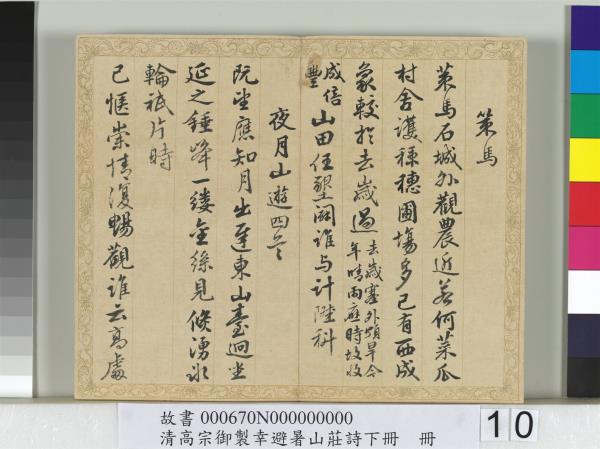 策馬
策馬石城外觀農近若何菜瓜
村舍護稼穗圃場多已有西成
象較於去歲過去歲塞外頗旱今
年晴雨應時故收
成倍
豐山田任墾闢誰与計陞科
夜月山遊四首
既望應知月出遲東山臺迥坐
延之錘峰一縷金絲見倏湧冰
輪祇片時
已愜崇情復暢觀誰云高處
故書 000670N000000000
清高宗御製幸避暑山莊詩下冊 冊
10